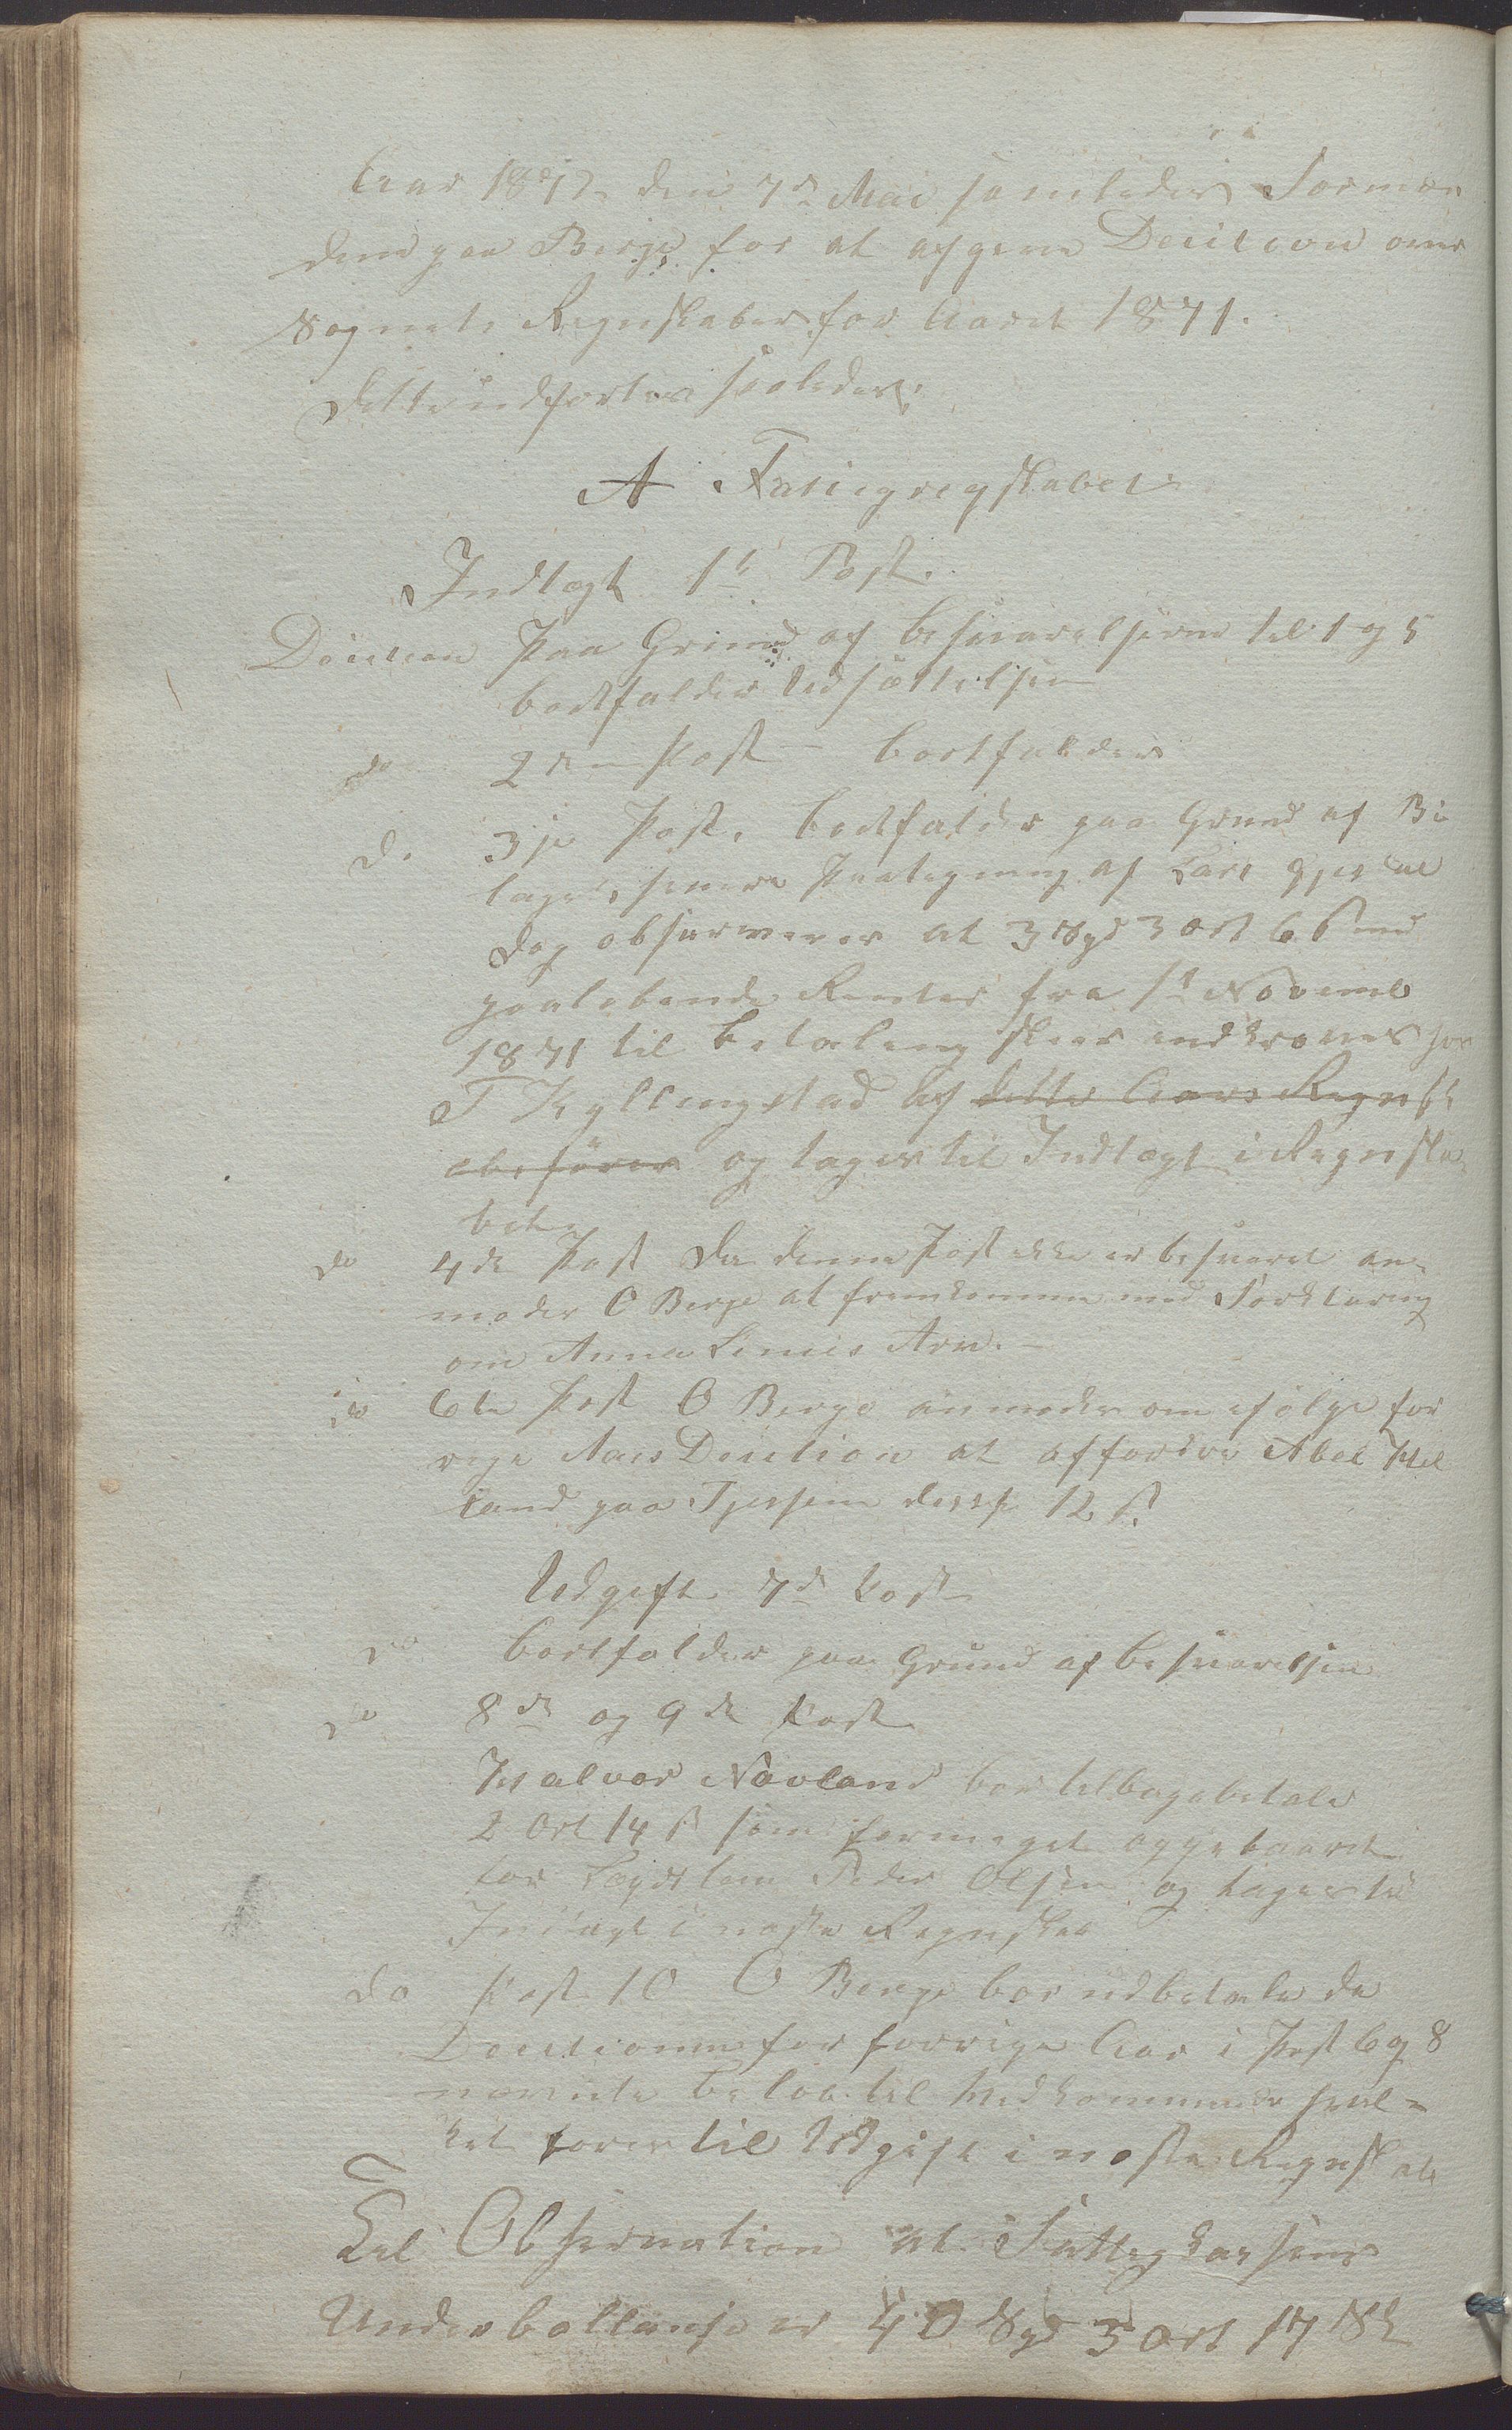 Aar 1872 den 7de Mai samledes Formæn
dene paa Berge for at afgive Decition over
Sognets Regnskaber for Aaret 1871.
Dette udførtes saaledes:
A Fatiegregskabet
Indtægt 1te Post.
Decition Paa Grund af Besvarelserne til 1 og 5
bortfalder Udsættelsen
do 2den Post bortfalder
do 3je Post. bortfalder paa Grund af Bi
lagets senere Paategning af Lars Gjesdal
dog observeres at 3 Spd 3 Ort 6 ß med
paaløbende Renter fra 1te Novemb
1871 til Betaling skeer indkræves hos
T Kyllingstad af dette Aars Regnsk
abesfører og tages til Indtægt i Regnska
bet.
do 4de Post Da denne Post ikke er besvaret an-
modes O Berge at fremkomme med Forklaring
om Anna Linies Arv.
do 6te Post O Berge anmodes om ifølge for
rige Aars Decition at affordre Abel Hel
land paa Tjessem 12 ß.
Udgift 7de Post
do bortfalder paa Grund af Besvarelsen
do 8de og 9de Post
Halvor Navland bør tilbagebetale
2 Ort 14 ß som formeget oppebaaret
for Lægdslem Peder Olsen og tages til
Indtægt i næste Regnskab
do Post 10 O Berge bør udbetale de
Decitionen for forrige Aar i Post 6 og 8
nævnte Beløb til Vedkommende hvil-
ket fores til Udgift i næste Regnskab
Til Observation at Fattigkassens
Underballanse er 40 Spd 3 Ort 17 Sk